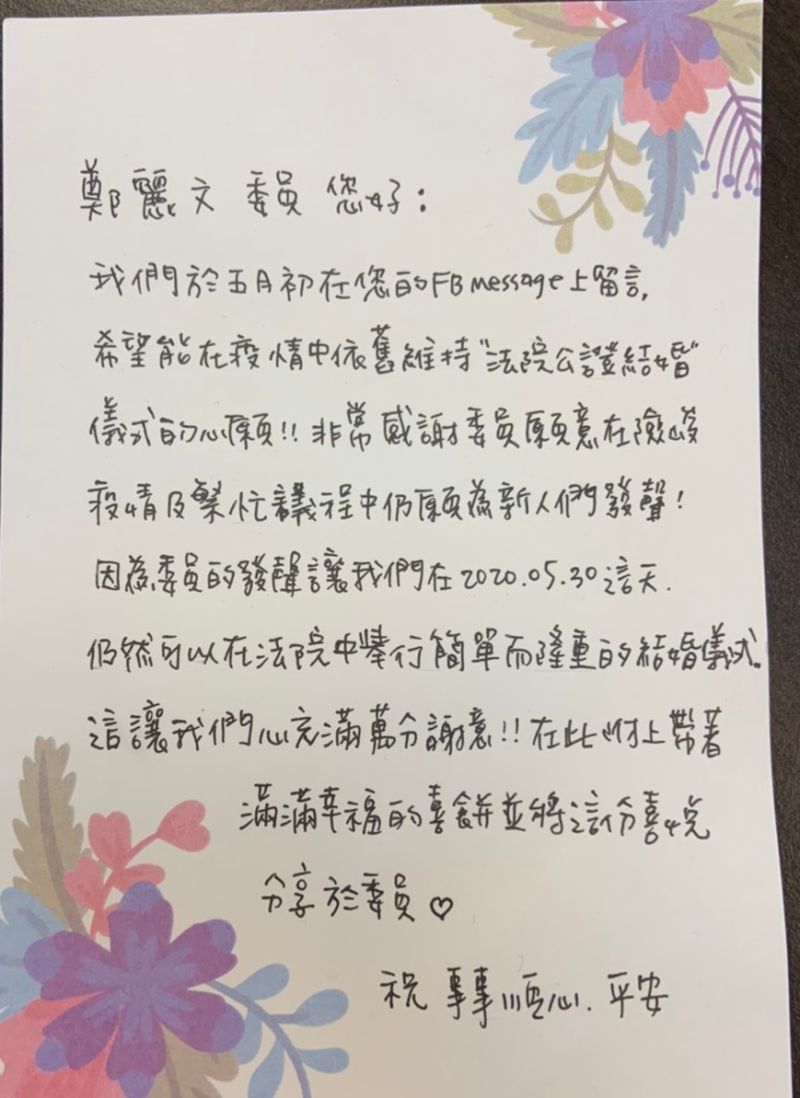 鄭麗文 委員 您好：
我們於五月初在您的FB message上留言,
希望能在疫情中依舊維持"法院公證結婚"
儀式的心願!! 非常感謝委員願意在險峻
疫情及繁忙議程中仍願為新人們發聲!
因為委員的發聲讓我們在2020.05.30這天.
仍然可以在法院中舉行簡單而隆重的結婚儀式。
這讓我們心充滿萬分謝意!! 在此附上帶著
滿滿幸福的喜餅並將這份喜悅
分享於委員♡
祝 事事順心. 平安